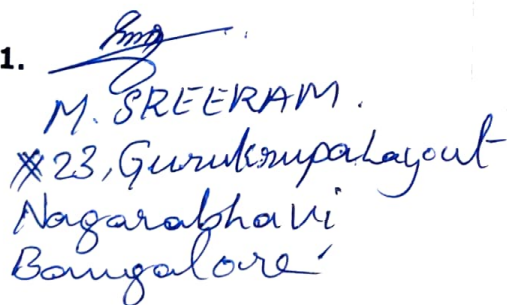 1.
M. SREERAM.
#23, Gurukrupa Layout
Nagarabhavi
Bangalore